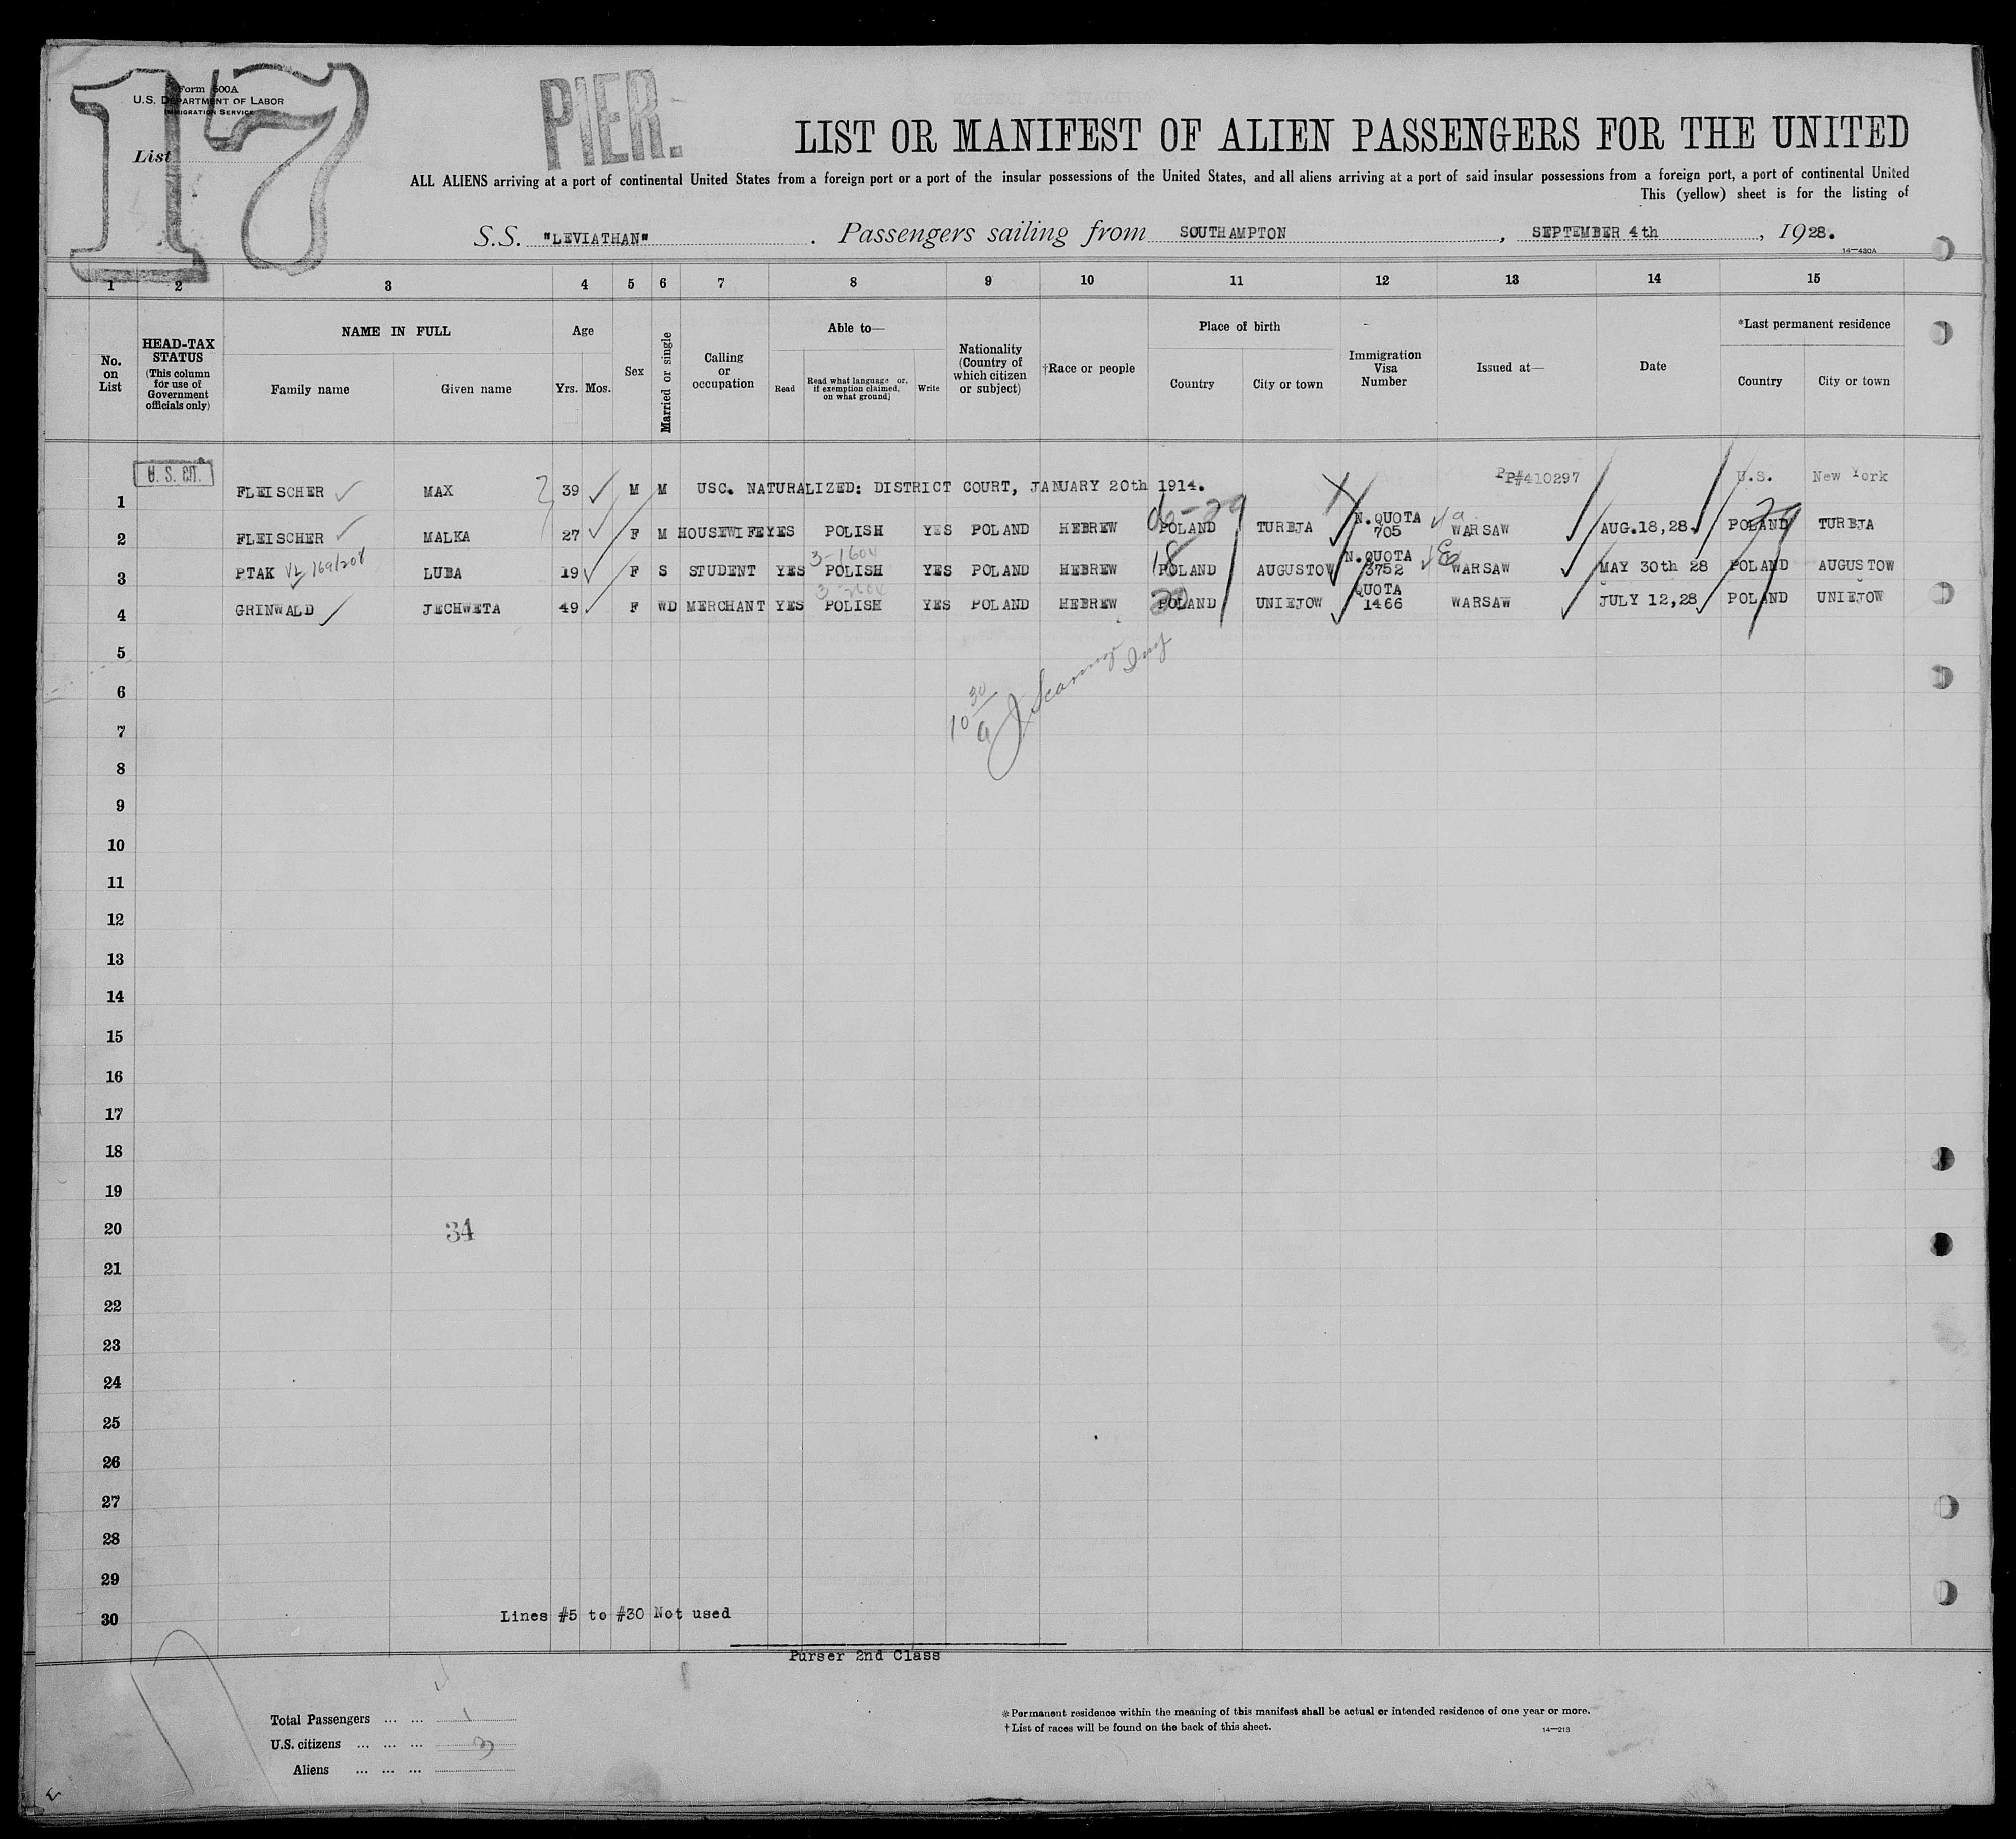 17
Form 500A
U.S. DEPARTMENT OF LABOR
IMMIGRATION SERVICE
List
PIER.
LIST OR MANIFEST OF ALIEN PASSENGERS FOR THE UNITED
ALL ALIENS arriving at a port of continental United States from a foreign port or a port of the insular possessions of the United States, and all aliens arriving at a port of said insular possessions from a foreign port, a port of continental United
This (yellow) sheet is for the listing of
S.S. "LEVIATHAN". Passengers sailing from SOUTHAMPTON, SEPTEMBER 4th, 1928.
14—430A
1 2 3 4 5 6 7 8 9 10 11 12 13 14 15
No. on List
HEAD-TAX STATUS (This column for use of Government officials only)
NAME IN FULL
Family name Given name
Age
Yrs. Mos.
Sex
Married or single
Calling or occupation
Able to—
Read Read what language or, if exemption claimed, on what ground] Write
Nationality (Country of which citizen or subject)
†Race or people
Place of birth
Country City or town
Immigration Visa Number
Issued at—
Date
*Last permanent residence
Country City or town
1 U. S. CIT. FLEISCHER MAX 39 M M USC. NATURALIZED: DISTRICT COURT, JANUARY 20th 1914. PP#410297 U.S. New York
2 FLEISCHER MALKA 27 F M HOUSEWIFE YES POLISH YES POLAND HEBREW POLAND TURBJA N.QUOTA 705 WARSAW AUG.18,28. POLAND TURBJA
3 PTAK VL 169/208 LUBA 19 F S STUDENT YES POLISH YES POLAND HEBREW POLAND AUGUSTOW N.QUOTA 3752 WARSAW MAY 30th 28 POLAND AUGUSTOW
4 GRINWALD JECHWETA 49 F WD MERCHANT YES POLISH YES POLAND HEBREW POLAND UNIEJOW QUOTA 1466 WARSAW JULY 12,28 POLAND UNIEJOW
5
6
7
8
9
10
11
12
13
14
15
16
17
18
19
20 34
21
22
23
24
25
26
27
28
29
30
Lines #5 to #30 Not used
Purser 2nd Class
Total Passengers ... ... 1
U.S. citizens ... ... ... 3
Aliens ... ... ...
*Permanent residence within the meaning of this manifest shall be actual or intended residence of one year or more.
†List of races will be found on the back of this sheet.
14—213